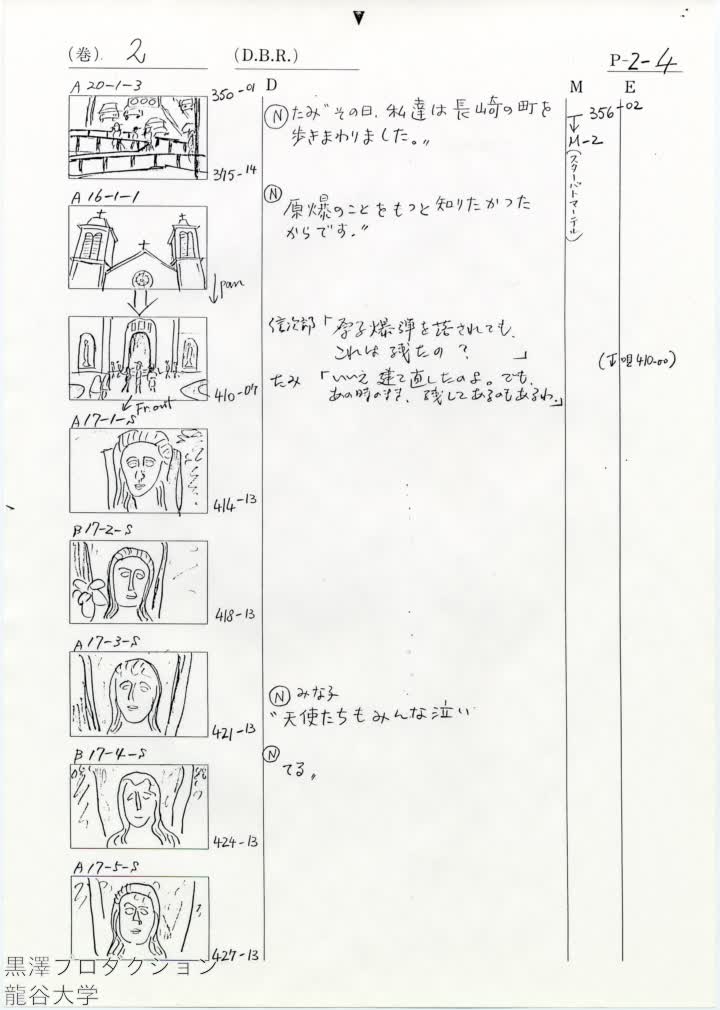 (巻). 2 (D.B.R.) P-2-4
D M E
A 20-1-3 350-01
Ⓝ たみ〝その日、私達は長崎の町を
歩きまわりました。〟
356-02
M-2
(スターバトマーテル)
375-14
A 16-1-1
Ⓝ
原爆のことをもっと知りたかった
からです。〟
pan
信次郎「原子爆弾を落されても、
これは残たの?」
(下同410-00)
たみ「いいえ 建て直したのよ。でも、
あの時のまま、残してあるのもあるわ。」
410-07
Fr.out
A 17-1-S
414-13
B 17-2-S
418-13
A 17-3-S
Ⓝ みな子
〝天使たちもみんな泣い
421-13
B 17-4-S
Ⓝ
てる〟
424-13
A 17-5-S
427-13
黒澤プロダクション
龍谷大学